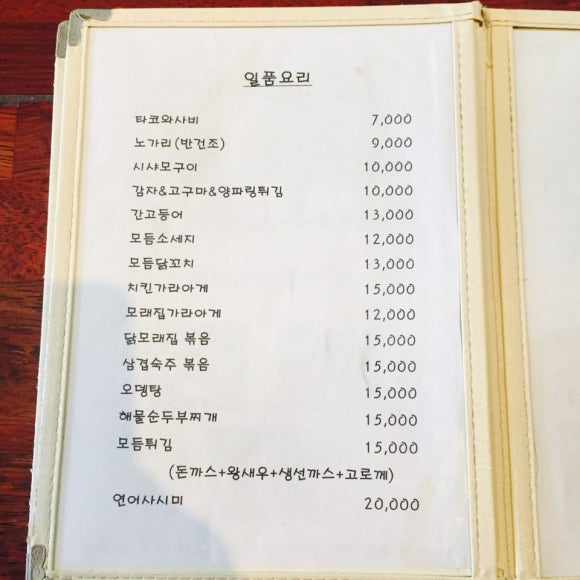 일품요리
타코와사비 7,000
노가리(반건조) 9,000
시샤모구이 10,000
감자&고구마&양파링튀김 10,000
간고등어 13,000
모듬소세지 12,000
모듬닭꼬치 13,000
치킨가라아게 15,000
모래집가라아게 12,000
닭모래집 볶음 15,000
삼겹숙주 볶음 15,000
오뎅탕 15,000
해물순두부찌개 15,000
모듬튀김 15,000
(돈까스+왕새우+생선까스+고로께)
연어사시미 20,000